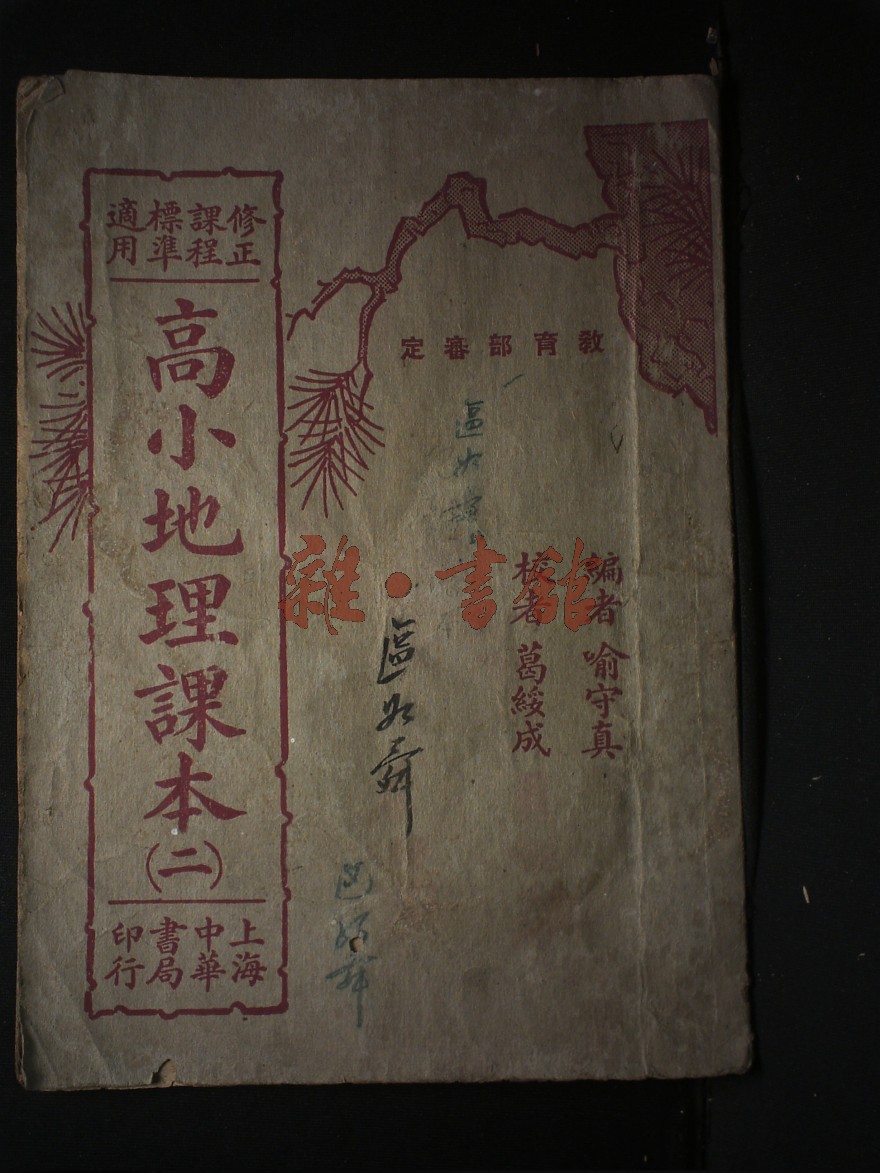 教育部審定
編者 喻守真
校者 葛綏成
修正課程標準適用
高小地理課本
(二)
上海中華書局印行
區如舜
雜·書館